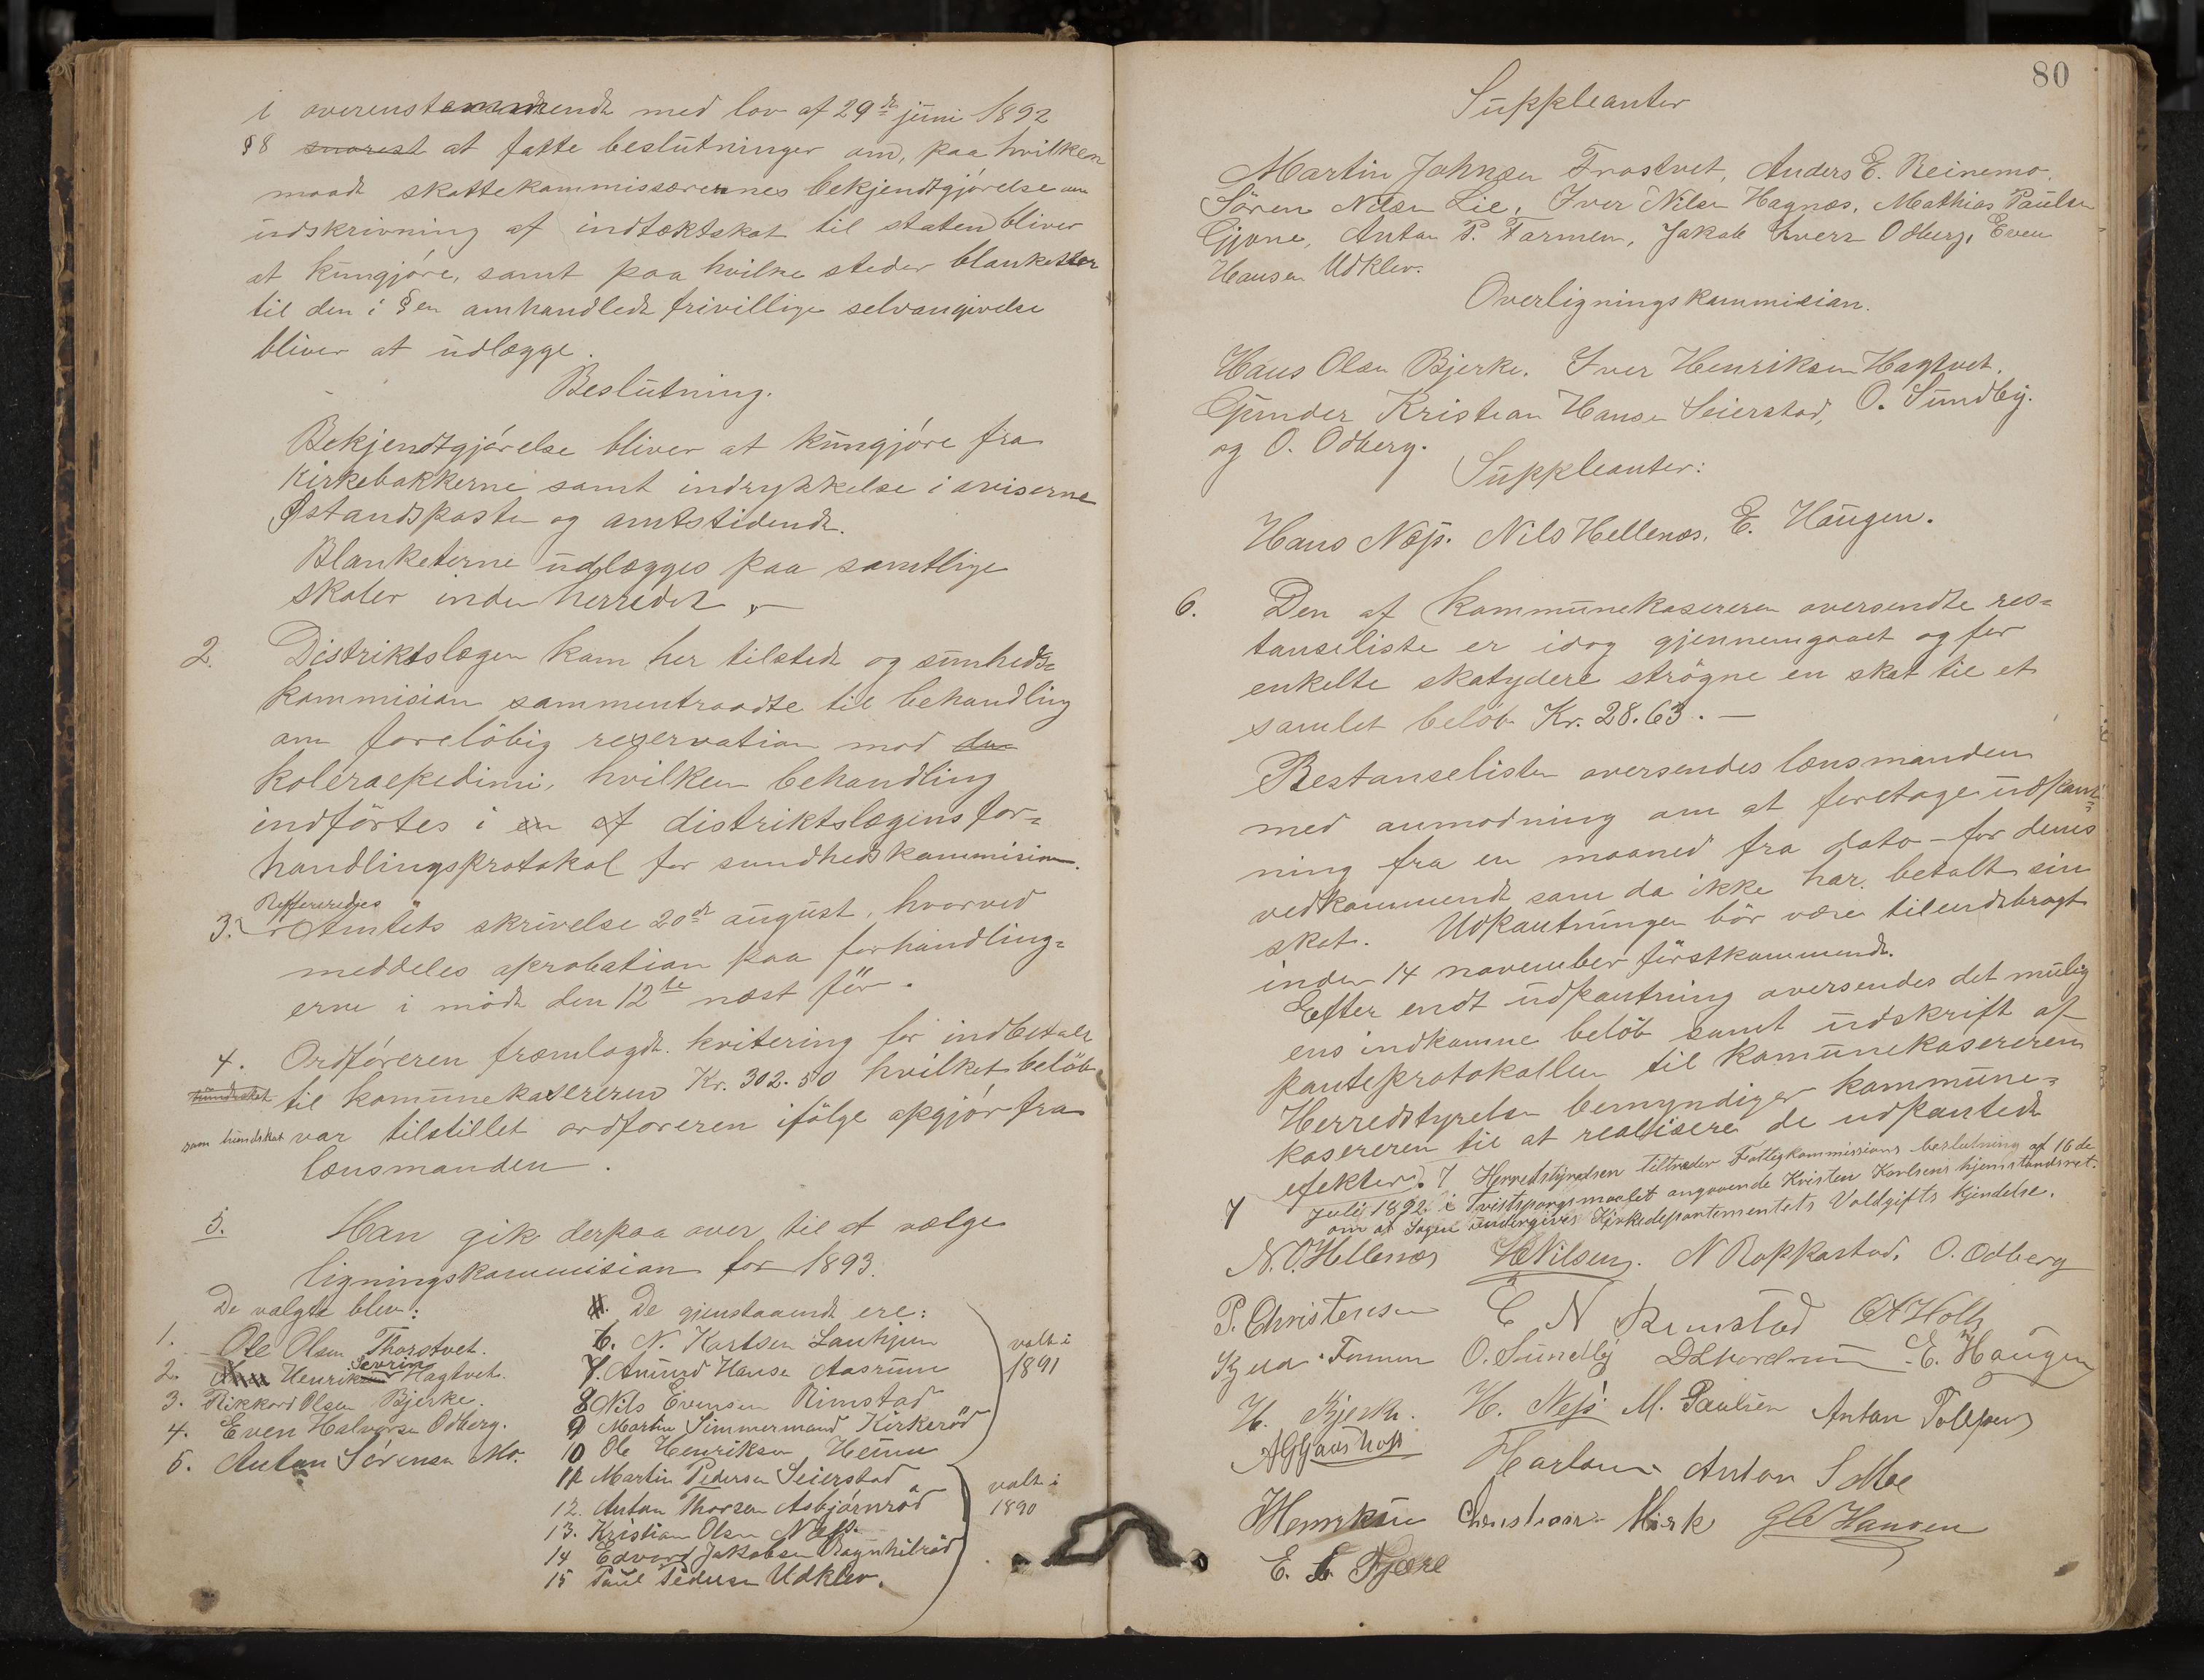 i overenstemmende med lov af 29de juni 1892
§8 snarest at fatte beslutninger om, paa hvilken
maade skattekommissærernes bekjendtgjørelse om
udskrivning af indtæktskat til staten bliver
at kungjøre, samt paa hvilke steder blanketter
til den i §en omhandlede frivillige selvangivelse
bliver at udlægge.
Beslutning.
Bekjendtgjørelse bliver at kungjøre fra
kirkebakkerne samt indrykkelse i aviserne
Østlandsposten og amtstidende.
Blanketerne udlægges paa samtlige
skoler inden herredet.
2. Distriktslægen kom her tilstede og sunheds=
kommision sammentraadte til behandling
om foreløbig reservation mod den
koleraepedimi, hvilken behandling
indførtes i en af distriktslægens for=
handlingsprotokol for sundhedskommision.
Reffereredes
3. Amtets skrivelse 20de august, hvorved
meddeles aprobation paa forhandling=
erne i møde den 12te næst før.
4. Ordføreren fræmlagde kvitering for indbetalt
hundeskat til komunekasereren Kr. 302.50 hvilket beløb
som hundskat var tilstillet ordføreren ifølge opgjør fra
lænsmanden.
5. Man gik derpaa over til at vælge
ligningskommision for 1893.
De valgte blev:
1. Ole Olsen Thorstvet.
2. Henrik Sevrin Hagtvet.
3. Rikkard Olsen Bjerke.
4. Even Halvorsen Odberg.
5. Anton Sørensen Mo.
De gjenstaaende ere:
6. N. Karlsen Lauhjem
7. Amund Hansen Aasrum
8 Nils Evensen Rimstad
9 Martin Simmermand Kirkerød
10 Ole Henriksen Heum
valt i
1891
11 Martin Pedersen Seierstad
12. Anton Thorsen Asbjørnrød
13. Kristian Olsen Næss.
14 Edvard Jakobsen Ragnhilrød
15 Paul Pedersen Udklev.
valt i
1890
80
Suppleanter
Martin Johnsen Frostvet, Anders E. Reinemo.
Søren Nilsen Lie, Iver Nilsen Hagnæs, Mathias Paulsen
Gjone, Anton P. Farmen, Jakob Ivers. Odberg, Even
Hansen Udklev.
Overligningskommision.
Hans Olsen Bjerke. Iver Henriksen Hagtvet.
Gunder Kristian Hansen Seierstad, O. Sundby.
og O. Odberg.
Suppleanter:
Hans Næss. Nils Hellenæs, E. Haugen.
6. Den af kommunekasereren oversendte res=
tanseliste er idag gjennemgaaet og for
enkelte skatydere strøgne en skat til et
samlet beløb Kr. 28.63. —
Restanselisten oversendes lænsmanden
med anmodning om at foretage udpant=
ning fra en maaned fra dato - for deres
vedkommende som da ikke har betalt sin
skat. Udpantningen bør være tilendebragt
inden 14 november førstkommende.
Efter endt udpantning oversendes det mulig
ens indkomne beløb samt udskrift af
panteprotokollen til komunekasereren
Herredstyrelsen bemyndiger kommune=
kasereren til at realisere de udpantede
efekter.
7 Herredstyrelsen tiltræder Fattigkommissions beslutning af 16de
Juli 1892 i Tvistspørgsmaalet angaaende Kristen Karlsens hjemstandsret.
om at Sagen undergives Kirkedepartementets Voldgifts kjendelse.
N. O. Hellenæs H Nilsen. N Roppastad. O. Odberg
P. Christensen E N Rimstad O A Holt
O. Sundby E. Haugen
H. Bjerke. H. Næss M. Paulsen Anton
Anton S Moe
Henriksen Christian Mørk G C Hansen
E. Fjære